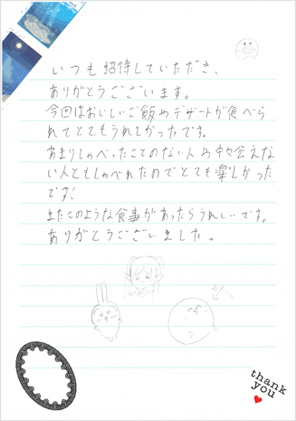 いつも招待していただき、
ありがとうございます。
今回はおいしいご飯やデザートが食べら
れてとてもうれしかったです。
あまりしゃべったことのない人や中々会えな
い人ともしゃべれたのでとても楽しかった
です!
またこのような食事があったらうれしいです。
ありがとうございました。
thank
you